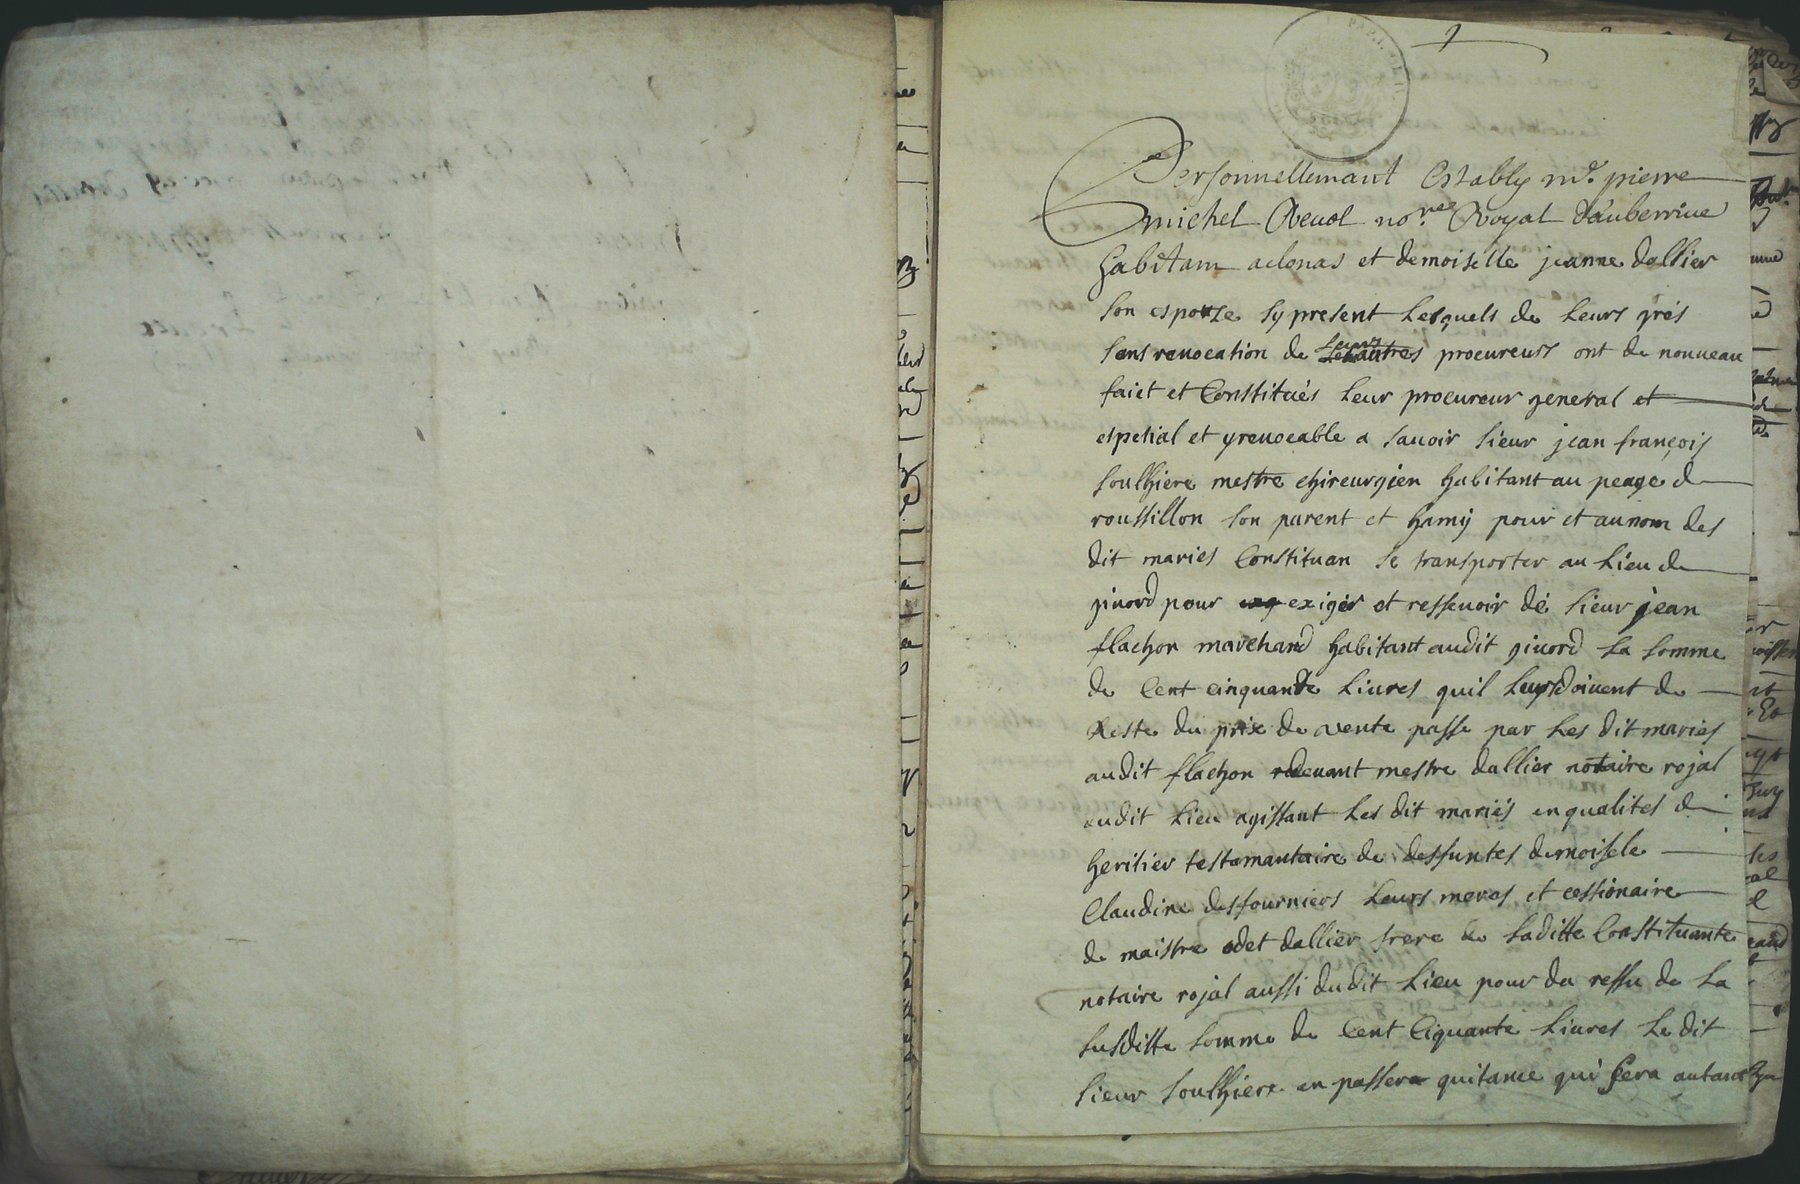 Personnellemant Estably mr. pierre
michel Revol no.re Royal d'auberrive
habitam aclonas et demoiselle jeanne dallier
son espouse sy present Lesquels de Leurs grés
sans revocation de Leurs procureurs ont de nouveau
faict et Constitués Leur procureur general et
espetial et yrevocable a savoir sieur jean françois
soulhiere mestre chireurgien habitant au peage de
roussillon son parent et hamy pour et au nom des
dit maries Constituan se transporter au Lieu de
givord pour exiger et ressevoir de sieur jean
flachon marchand habitant audit givord La somme
de Cent cinquante Livres quil Leurs doivent de
Reste du prix de vente passe par Les dit maries
audit flachon devant mestre dallier notaire rojal
audit Lieu agissant Les dit mariés en qualites de
heritier testamantaire de deffuntes demoisele
Claudine desfourniers Leurs meres et cessionaire
de maistre odet dallier frere de Laditte Constituante
notaire rojal aussi dudit Lieu pour du ressu de La
susditte somme de Cent Ciquante Livres Le dit
sieur soulhiere en passera quitance qui sera autant